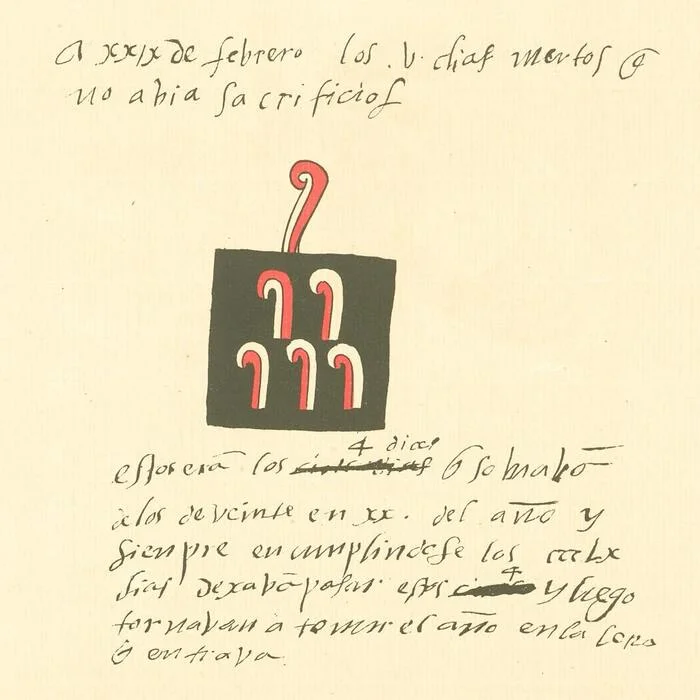 A xxix de febrero los .v. dias mertos q̄
no abia sacrificios
4 dias
estos erā los cinco dias q̄ sobrabā
a los de veinte en xx. del año y
siempre en cumpliēdose los ccclx
dias dexavā pasar estos 4 y luego
tornavan a tomar el año en la letra
q̄ entrava